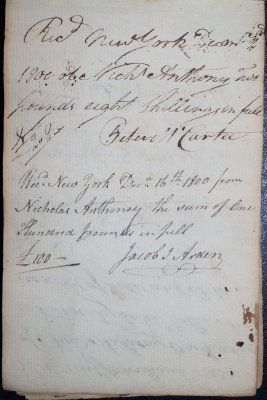 Rec.d New York Decem.r
1800 of Nich.s Anthoney two
pounds eight Shillings in full
Peter McCartee
Rec.d New York Dec.r 16th 1800 from
Nicholas Anthoney the sum of One
Hundred pounds in full
£100 —
Jacob J Arden